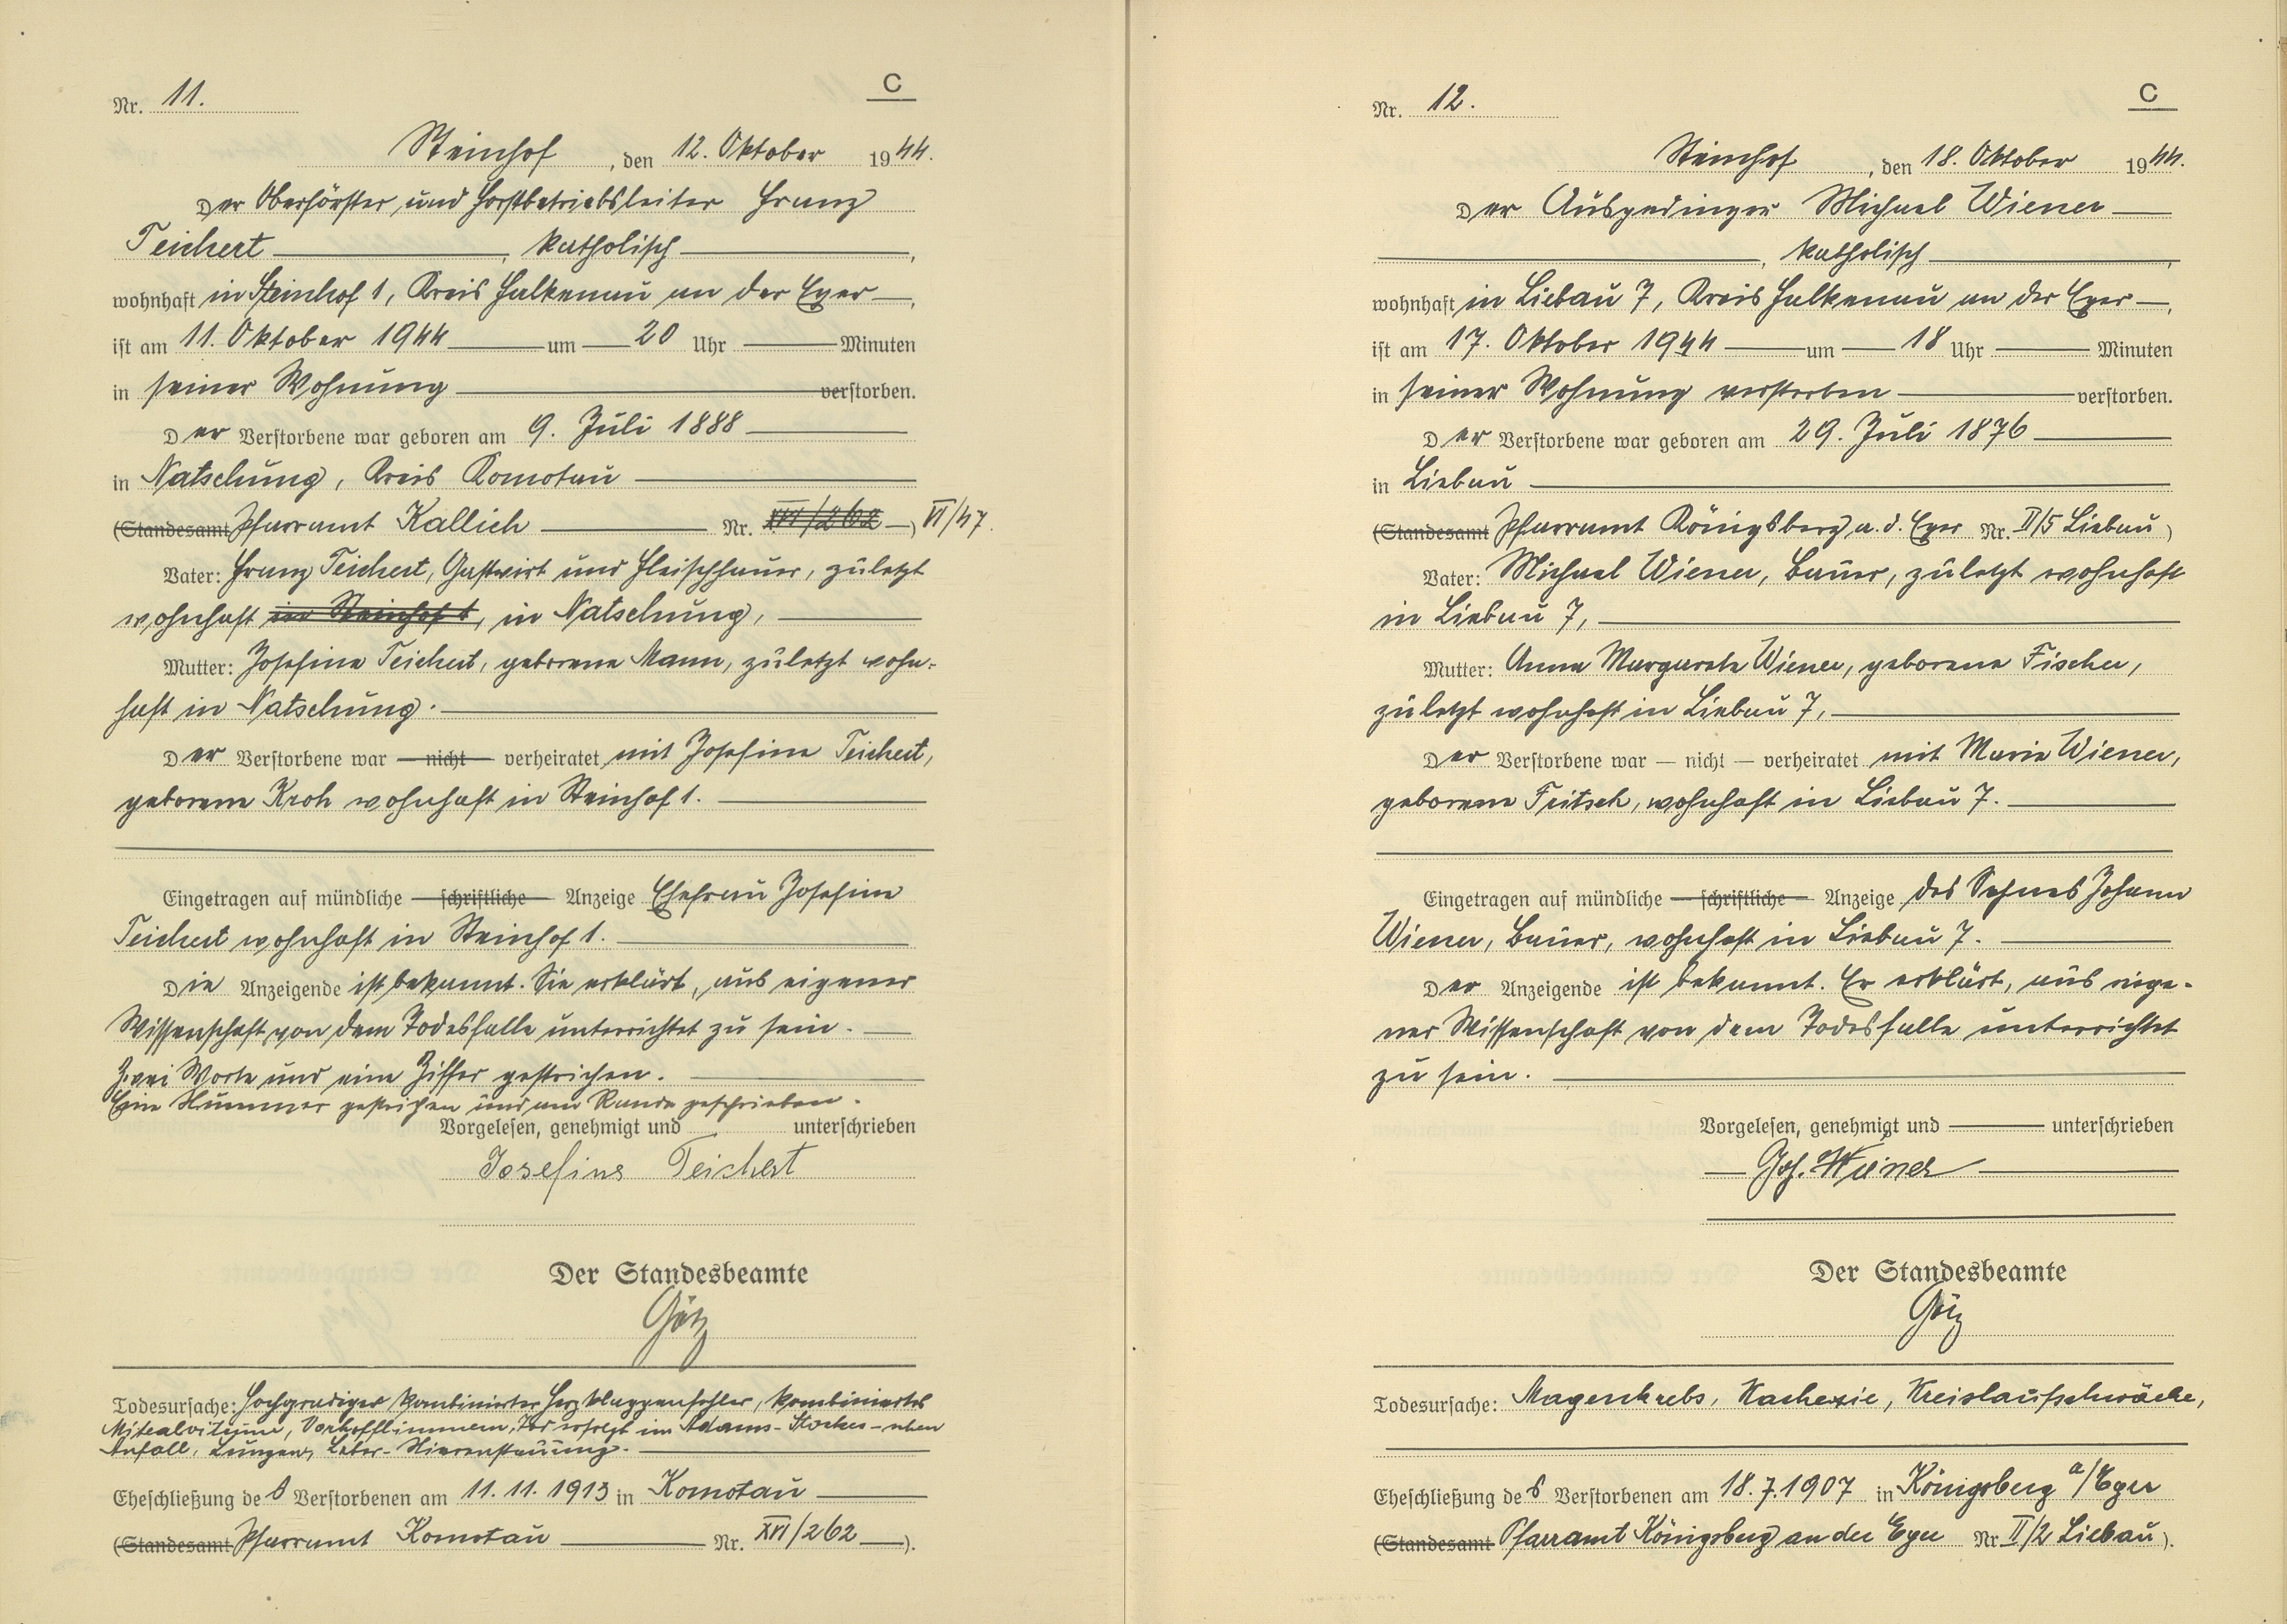 C
Nr. 11.
Steinhof, den 12. Oktober 1944.
Der Oberförster und Forstbetriebsleiter Franz
Teichert, katholisch,
wohnhaft in Steinhof 1, Kreis Falkenau an der Eger,
ist am 11. Oktober 1944 um 20 Uhr Minuten
in seiner Wohnung verstorben.
Der Verstorbene war geboren am 9. Juli 1888
in Natschung, Kreis Komotau
(Standesamt Pfarramt Kallich Nr. XVI/262) VI/47.
Vater: Franz Teichert, Gastwirt und Fleischhauer, zuletzt
wohnhaft in Steinhof 1, in Natschung,
Mutter: Josefine Teichert, geborene Mann, zuletzt wohn-
haft in Natschung.
Der Verstorbene war — nicht — verheiratet mit Josefine Teichert,
geborene Kroh wohnhaft in Steinhof 1.
Eingetragen auf mündliche — schriftliche — Anzeige Ehefrau Josefine
Teichert wohnhaft in Steinhof 1.
Die Anzeigende ist bekannt. Sie erklärt, aus eigener
Wissenschaft von dem Todesfalle unterrichtet zu sein.
Zwei Worte und eine Ziffer gestrichen.
Eine Nummer gestrichen und am Rande geschrieben.
Vorgelesen, genehmigt und unterschrieben
Josefine Teichert
Der Standesbeamte
Götz
Todesursache: Hochgradiger kombinierter Herzklappenfehler, kombiniertes
Mitralvitium, Vorhofflimmern, Tod erfolgt im Adams-Stockes-schen
Anfall, Lungen, Leber-Nierenstauung.
Eheschließung des Verstorbenen am 11.11.1913 in Komotau
(Standesamt Pfarramt Komotau Nr. XVI/262).
C
Nr. 12.
Steinhof, den 18. Oktober 1944.
Der Ausgedinger Michael Wiener
, katholisch,
wohnhaft in Liebau 7, Kreis Falkenau an der Eger,
ist am 17. Oktober 1944 um 18 Uhr Minuten
in seiner Wohnung verstorben verstorben.
Der Verstorbene war geboren am 29. Juli 1876
in Liebau
(Standesamt Pfarramt Königsberg a. d. Eger Nr. II/5 Liebau)
Vater: Michael Wiener, Bauer, zuletzt wohnhaft
in Liebau 7,
Mutter: Anna Margareta Wiener, geborene Fischer,
zuletzt wohnhaft in Liebau 7,
Der Verstorbene war — nicht — verheiratet mit Marie Wiener,
geborene Fritsch, wohnhaft in Liebau 7.
Eingetragen auf mündliche — schriftliche — Anzeige des Sohnes Johann
Wiener, Bauer, wohnhaft in Liebau 7.
Der Anzeigende ist bekannt. Er erklärt, aus eige-
ner Wissenschaft von dem Todesfalle unterrichtet
zu sein.
Vorgelesen, genehmigt und unterschrieben
Joh. Wiener
Der Standesbeamte
Götz
Todesursache: Magenkrebs, Kachexie, Kreislaufschwäche,
Eheschließung des Verstorbenen am 18.7.1907 in Königsberg a/Eger
(Standesamt Pfarramt Königsberg an der Eger Nr II/2 Liebau).